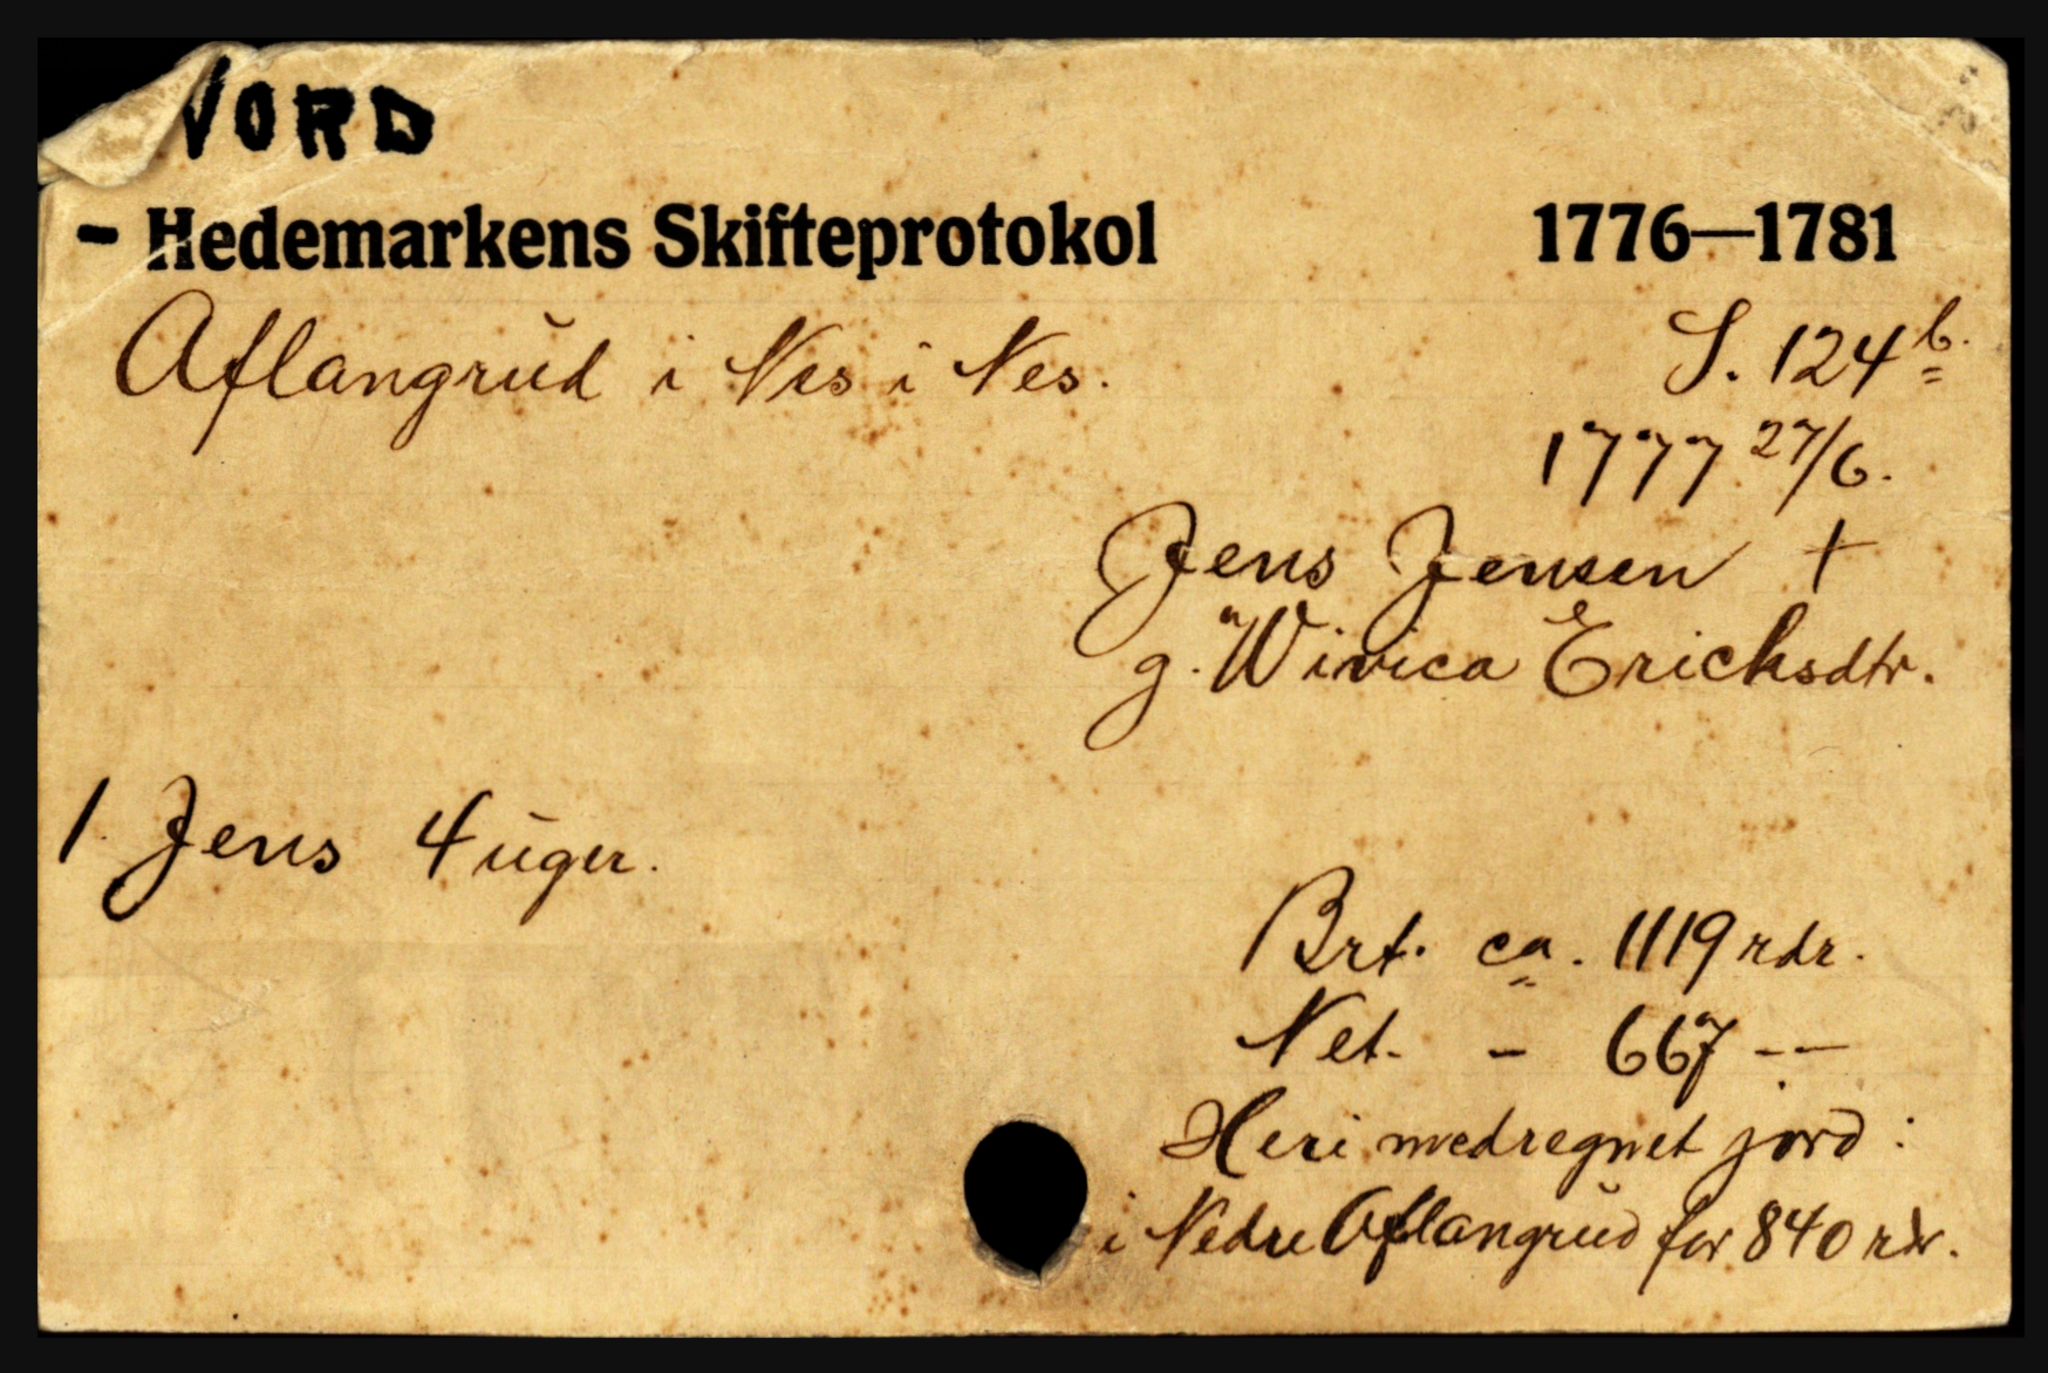 NORD
- Hedemarkens Skifteprotokol 1776—1781
Aflangrud i Nes i Nes. S. 124 b.
1777 27/6.
Jens Jensen +
g. Wivica Erichsdtr.
1. Jens 4 uger.
Brt. ca. 1119 rdr.
Net. - 667 --
Heri medregnet jord:
i Nedre Aflangrud for 840 rdr.